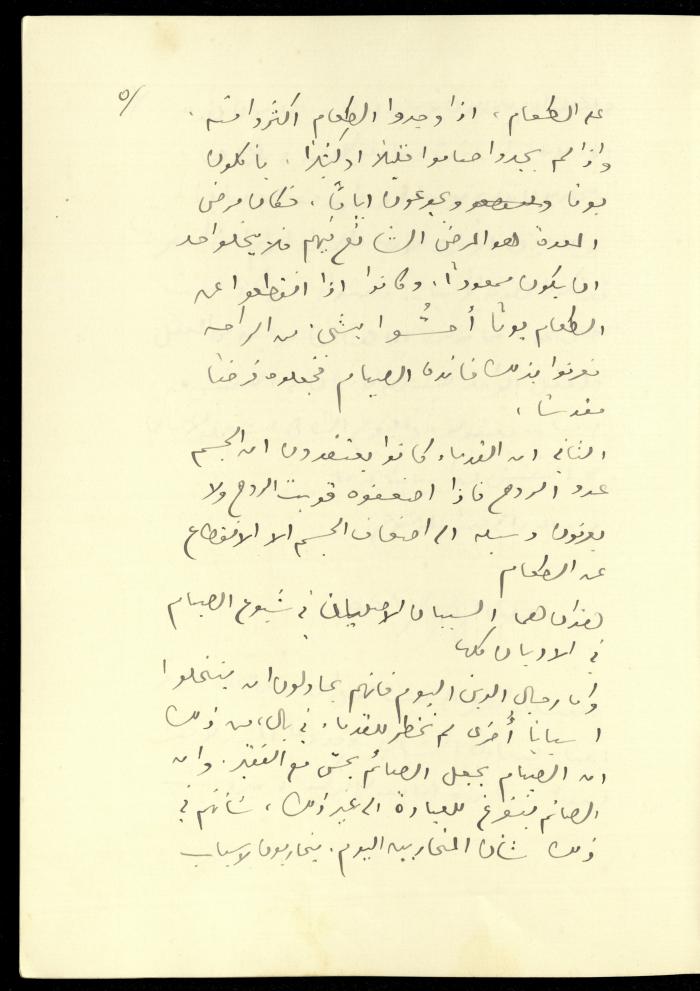 ٥/
عن الطعام، اذا وجدوا الطعام اكثروا منه.
واذا لم يجدوا صاموا قليلاً او كثيرًا. يأكلون
يومًا ويجوعون ايامًا، فكان مرض
المعدة هو المرض الشائع فيهم فلا يخلو احد
ان يكون ممعودًا، وكانوا اذا انقطعوا عن
الطعام يومًا أحسُّوا بشيء من الراحه
فعرفوا بذلك فائدة الصيام فجعلوه فرضًا
مقدسًا،
الثاني ان القدماء كانوا يعتقدون ان الجسم
عدو الروح فاذا اضعفوه قويت الروح ولا
يعرفون وسيله الى اضعاف الجسم الا الانقطاع
عن الطعام
هذان هما السببان الاصليان في شيوع الصيام
في الاديان كلها
واما رجال الدين اليوم فانهم يحاولون ان ينتحلوا
اسبابًا أُخرى لم تخطر للقدماء في بال، من ذلك
ان الصيام يجعل الصائم يحس مع الفقير. وان
الصائم يتفرغ للعبادة الى غير ذلك، شأنهم في
ذلك شأن المتحاربين اليوم. يتحاربون لاسباب